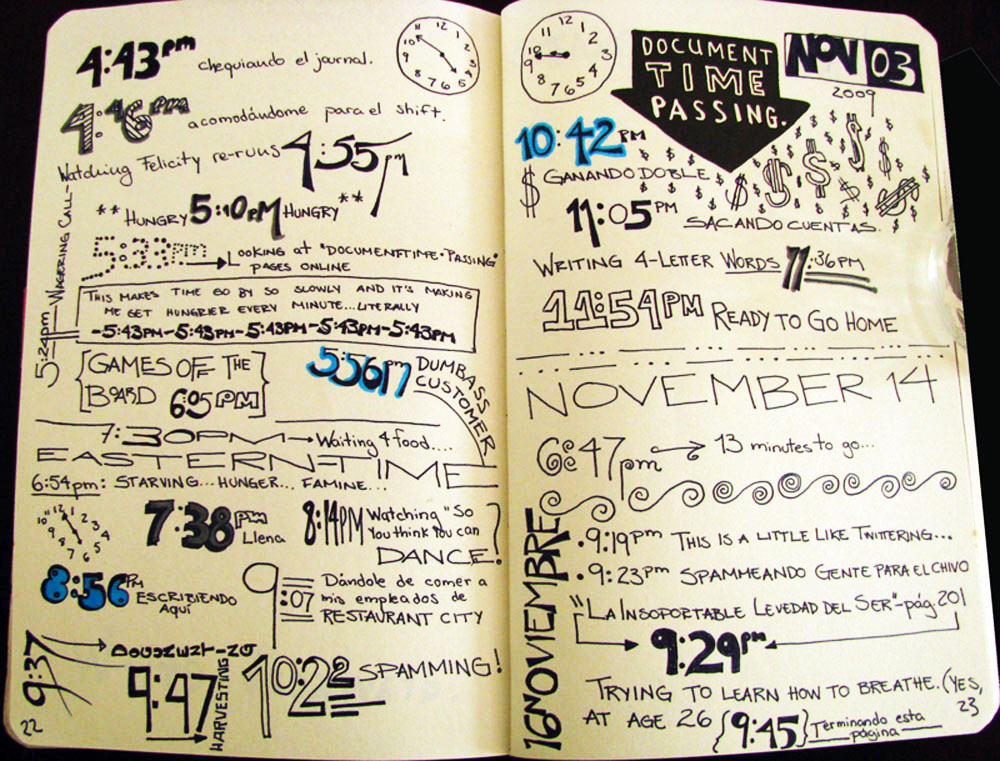 4:43pm chequiando el journal.
4:46pm acomodándome para el shift.
Watching Felicity re-runs 4:55pm
** HUNGRY 5:10PM HUNGRY **
5:24pm-WAGERING CALL-
5:33pm LOOKING AT "DOCUMENT·TIME·PASSING"
PAGES ONLINE
THIS MAKES TIME GO BY SO SLOWLY AND IT'S MAKING
ME GET HUNGRIER EVERY MINUTE...LITERALLY
-5:43PM-5:43PM-5:43PM-5:43PM-5:43PM
[GAMES OF THE
BOARD 6:05PM]
5:56pm DUMBASS
CUSTOMER
7:30PM Waiting 4 food....
EASTERN-TIME
6:54pm: STARVING... HUNGER... FAMINE...
7:38pm
Llena
8:14PM Watching "So
You think You can
DANCE?
8:56Pm ESCRIBIENDO
AQUÍ
9:07 Dándole de comer a
mis empleados de
RESTAURANT CITY
9:37 DOCUMENT-NG
9:47 HARVESTING
10:22 SPAMMING!
22
12 1 2 3 4 5 6 7 8 9 10 11
12 1 2 3 4 5 6 7 8 9 10 11
12 1 2 3 4 5 6 7 8 9 10 11
DOCUMENT
TIME
PASSING.
NOV 03
2009
10:42PM
$ GANANDO DOBLE
11:05PM
SACANDO CUENTAS.
WRITING 4-LETTER WORDS 11:36PM
11:54PM READY TO GO HOME
NOVEMBER 14
6:47pm 13 minutes to go...
16 NOVIEMBRE
·9:19pm THIS IS A LITTLE LIKE TWITTERING...
·9:23pm SPAMMEANDO GENTE PARA EL CHIVO
"LA INSOPORTABLE LEVEDAD DEL SER"-pág.201
9:29pm
TRYING TO LEARN HOW TO BREATHE. (YES,
AT AGE 26 {9:45} Terminando esta
página
23